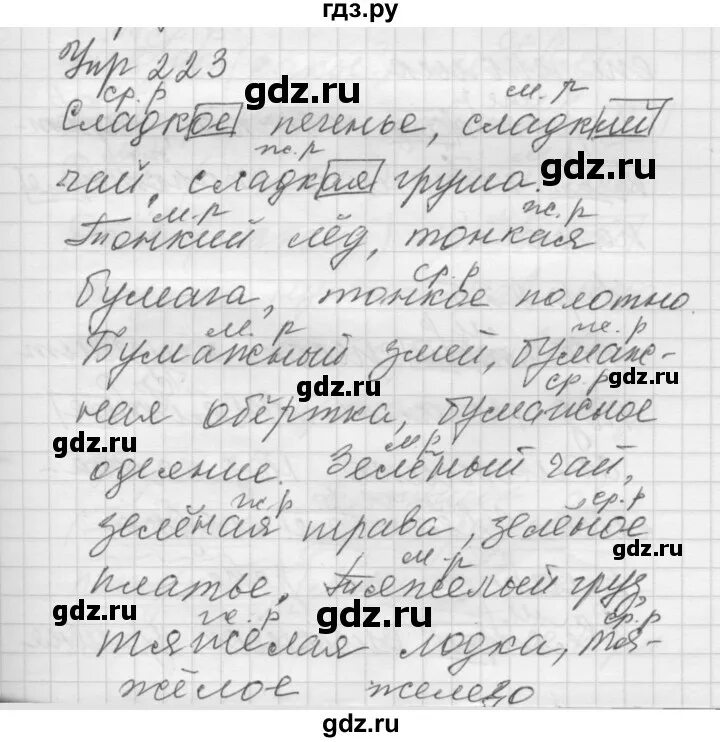 гдз.ру
Упр 223
ср. р м. р
Сладкое печенье, сладкий
gdz.ru
ж. р
чай, сладкая груша.
gdz.ru
м. р ж. р
Тонкий лёд, тонкая
ср. р
бумага, тонкое полотно.
м. р ж. р
Бумажный змей, бумаж-
gdz.ru
ср. р
gdz.ru
ная обёртка, бумажное
gdz.ru
м р
одеяние. Зелёный чай,
ж. р ср. р
зелёная трава, зелёное
gdz.ru
м. р
платье. Тяжёлый груз,
gdz.ru
gdz.ru
ж. р ср. р
тяжёлая лодка, тя-
жёлое железо
gdz.ru
gdz.ru